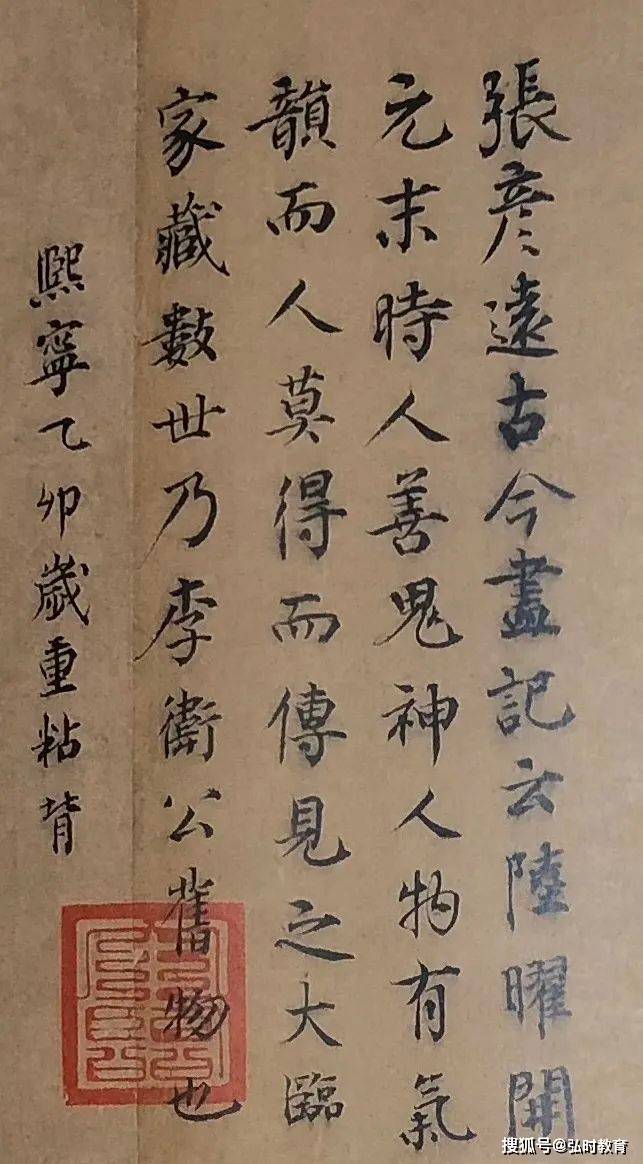 張彦遠古今畫記云陸曜開
元末時人善鬼神人物有氣
韻而人莫得而傳見之大臨
家藏數世乃李衛公舊物也
熙寧乙卯歲重粘背
搜狐号@弘时教育